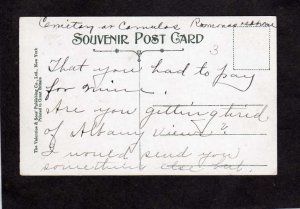 Cemetery at Camulos Ramona's
SOUVENIR POST CARD
3
That you had to pay
for mine.
Are you getting tired
of Albany views?
I would send you
something else but
The Valentine & Sons' Publishing Co., Ltd., New York
Printed in Great Britain